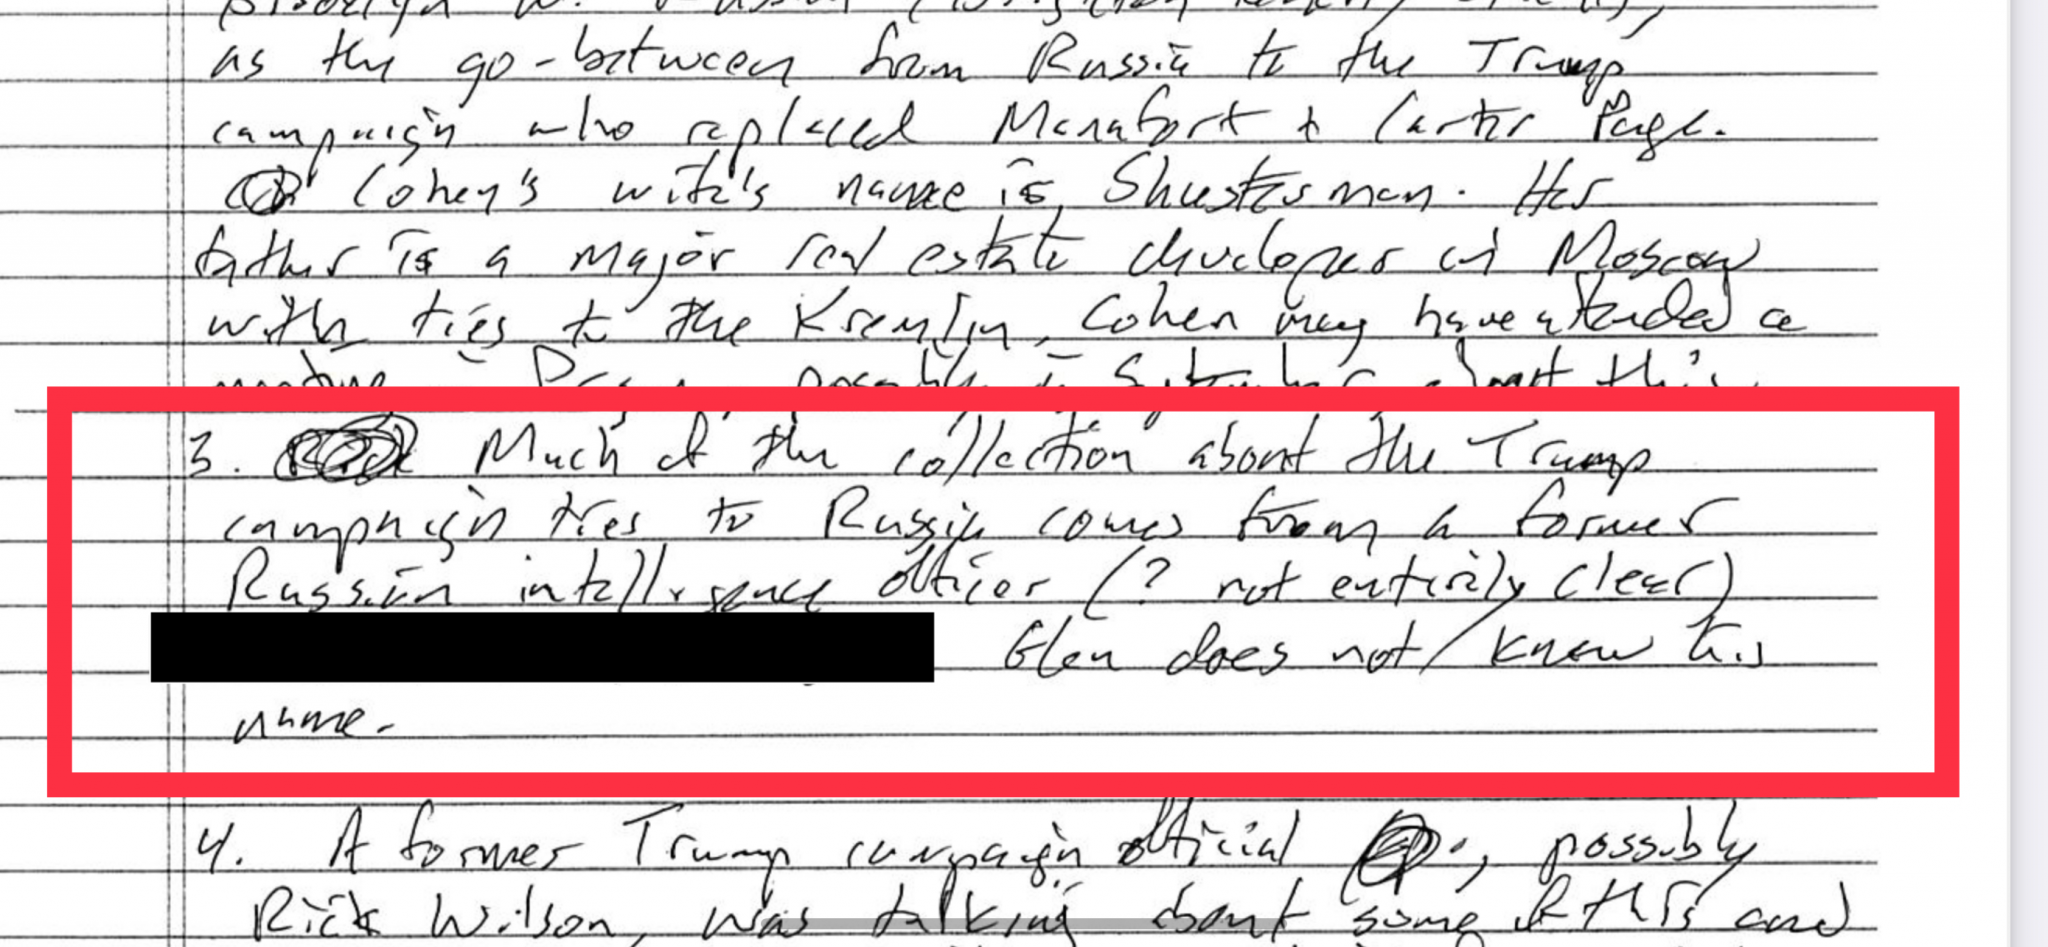 as the go-between from Russia to the Trump
campaign who replaced Manafort & Carter Page.
Cohen's wife's name is Shusterman. Her
father is a major real estate developer in Moscow
with ties to the Kremlin. Cohen may have attended a
possibly in September about this.
3. Much of the collection about the Trump
campaign ties to Russia comes from a former
Russian intelligence officer (? not entirely clear)
Glen does not know his
name.
4. A former Trump campaign official, possibly
Rick Wilson, was talking about some of this and